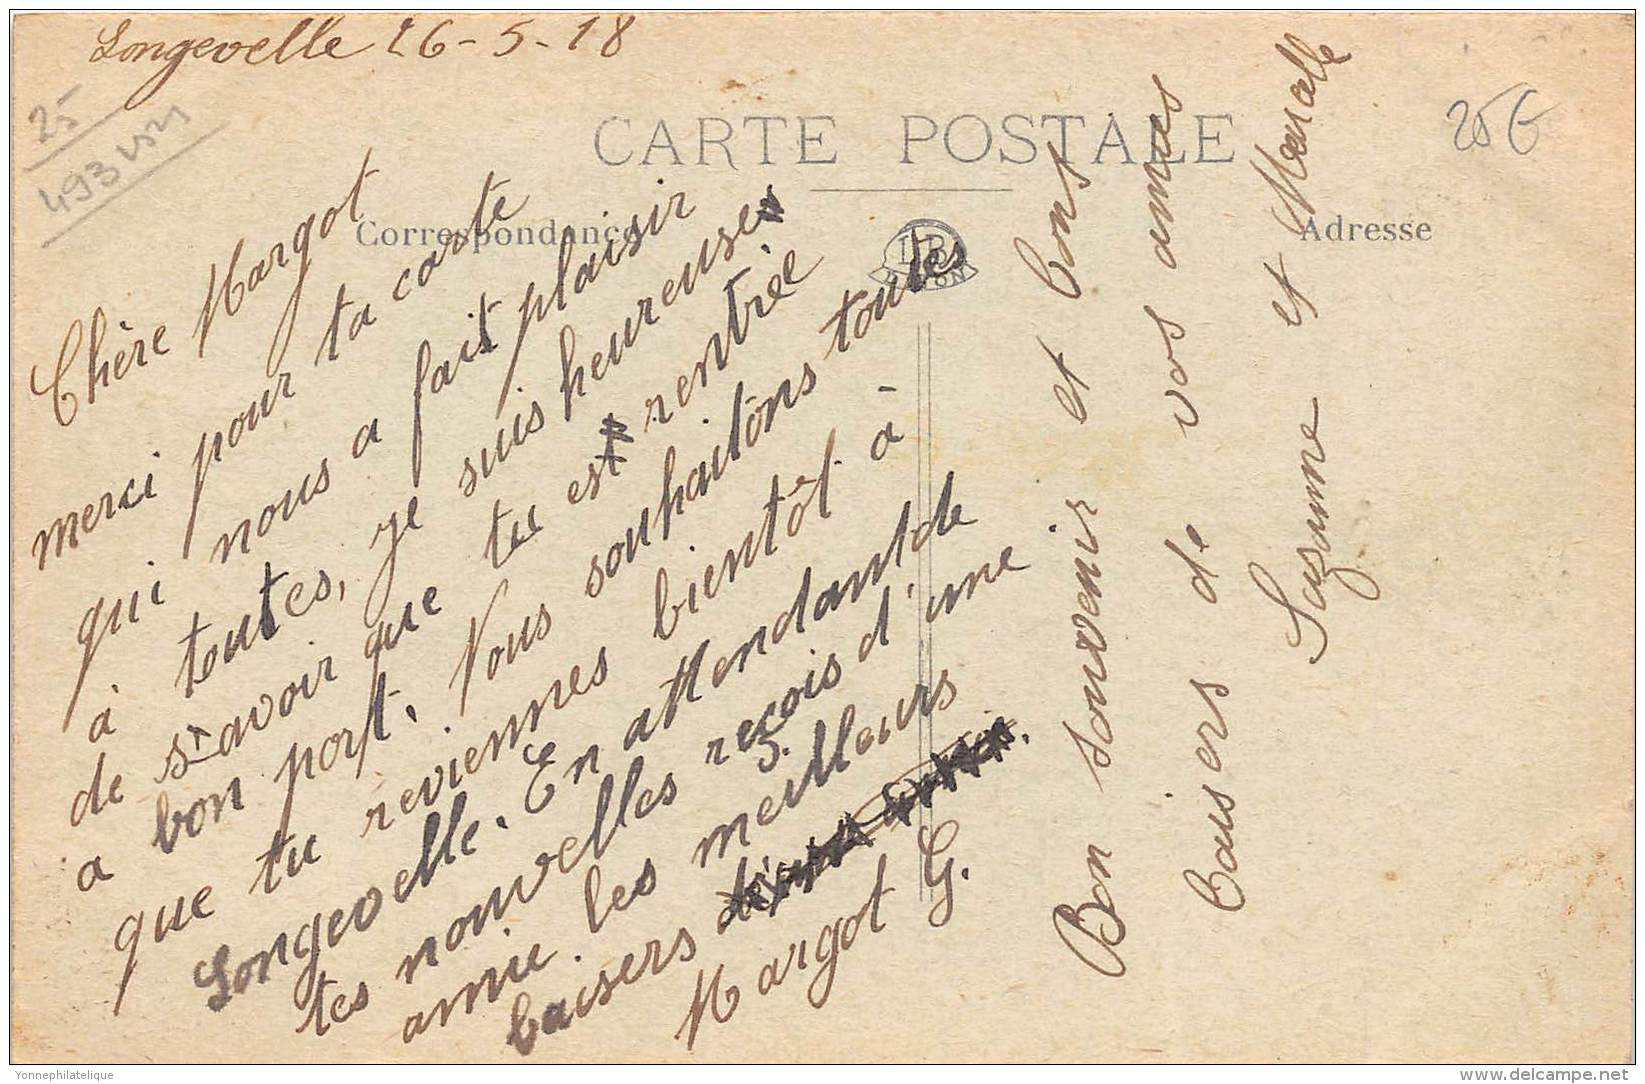 Longevelle 26-5-18
25
493
CARTE POSTALE
25€
Correspondance
Adresse
Chère Margot
merci pour ta carte
qui nous a fait plaisir
à toutes, je suis heureuse
de savoir que tu es rentrée
a bon port. Nous souhaitons toutes
que tu reviennes bientôt à
Longevelle. En attendant de
tes nouvelles reçois d'une
amie. les meilleurs
baisers
Margot G.
Bon souvenir et bons
baisers de vos amies
Suzanne et Marcelle
Yonnephilatelique
delcampe.net